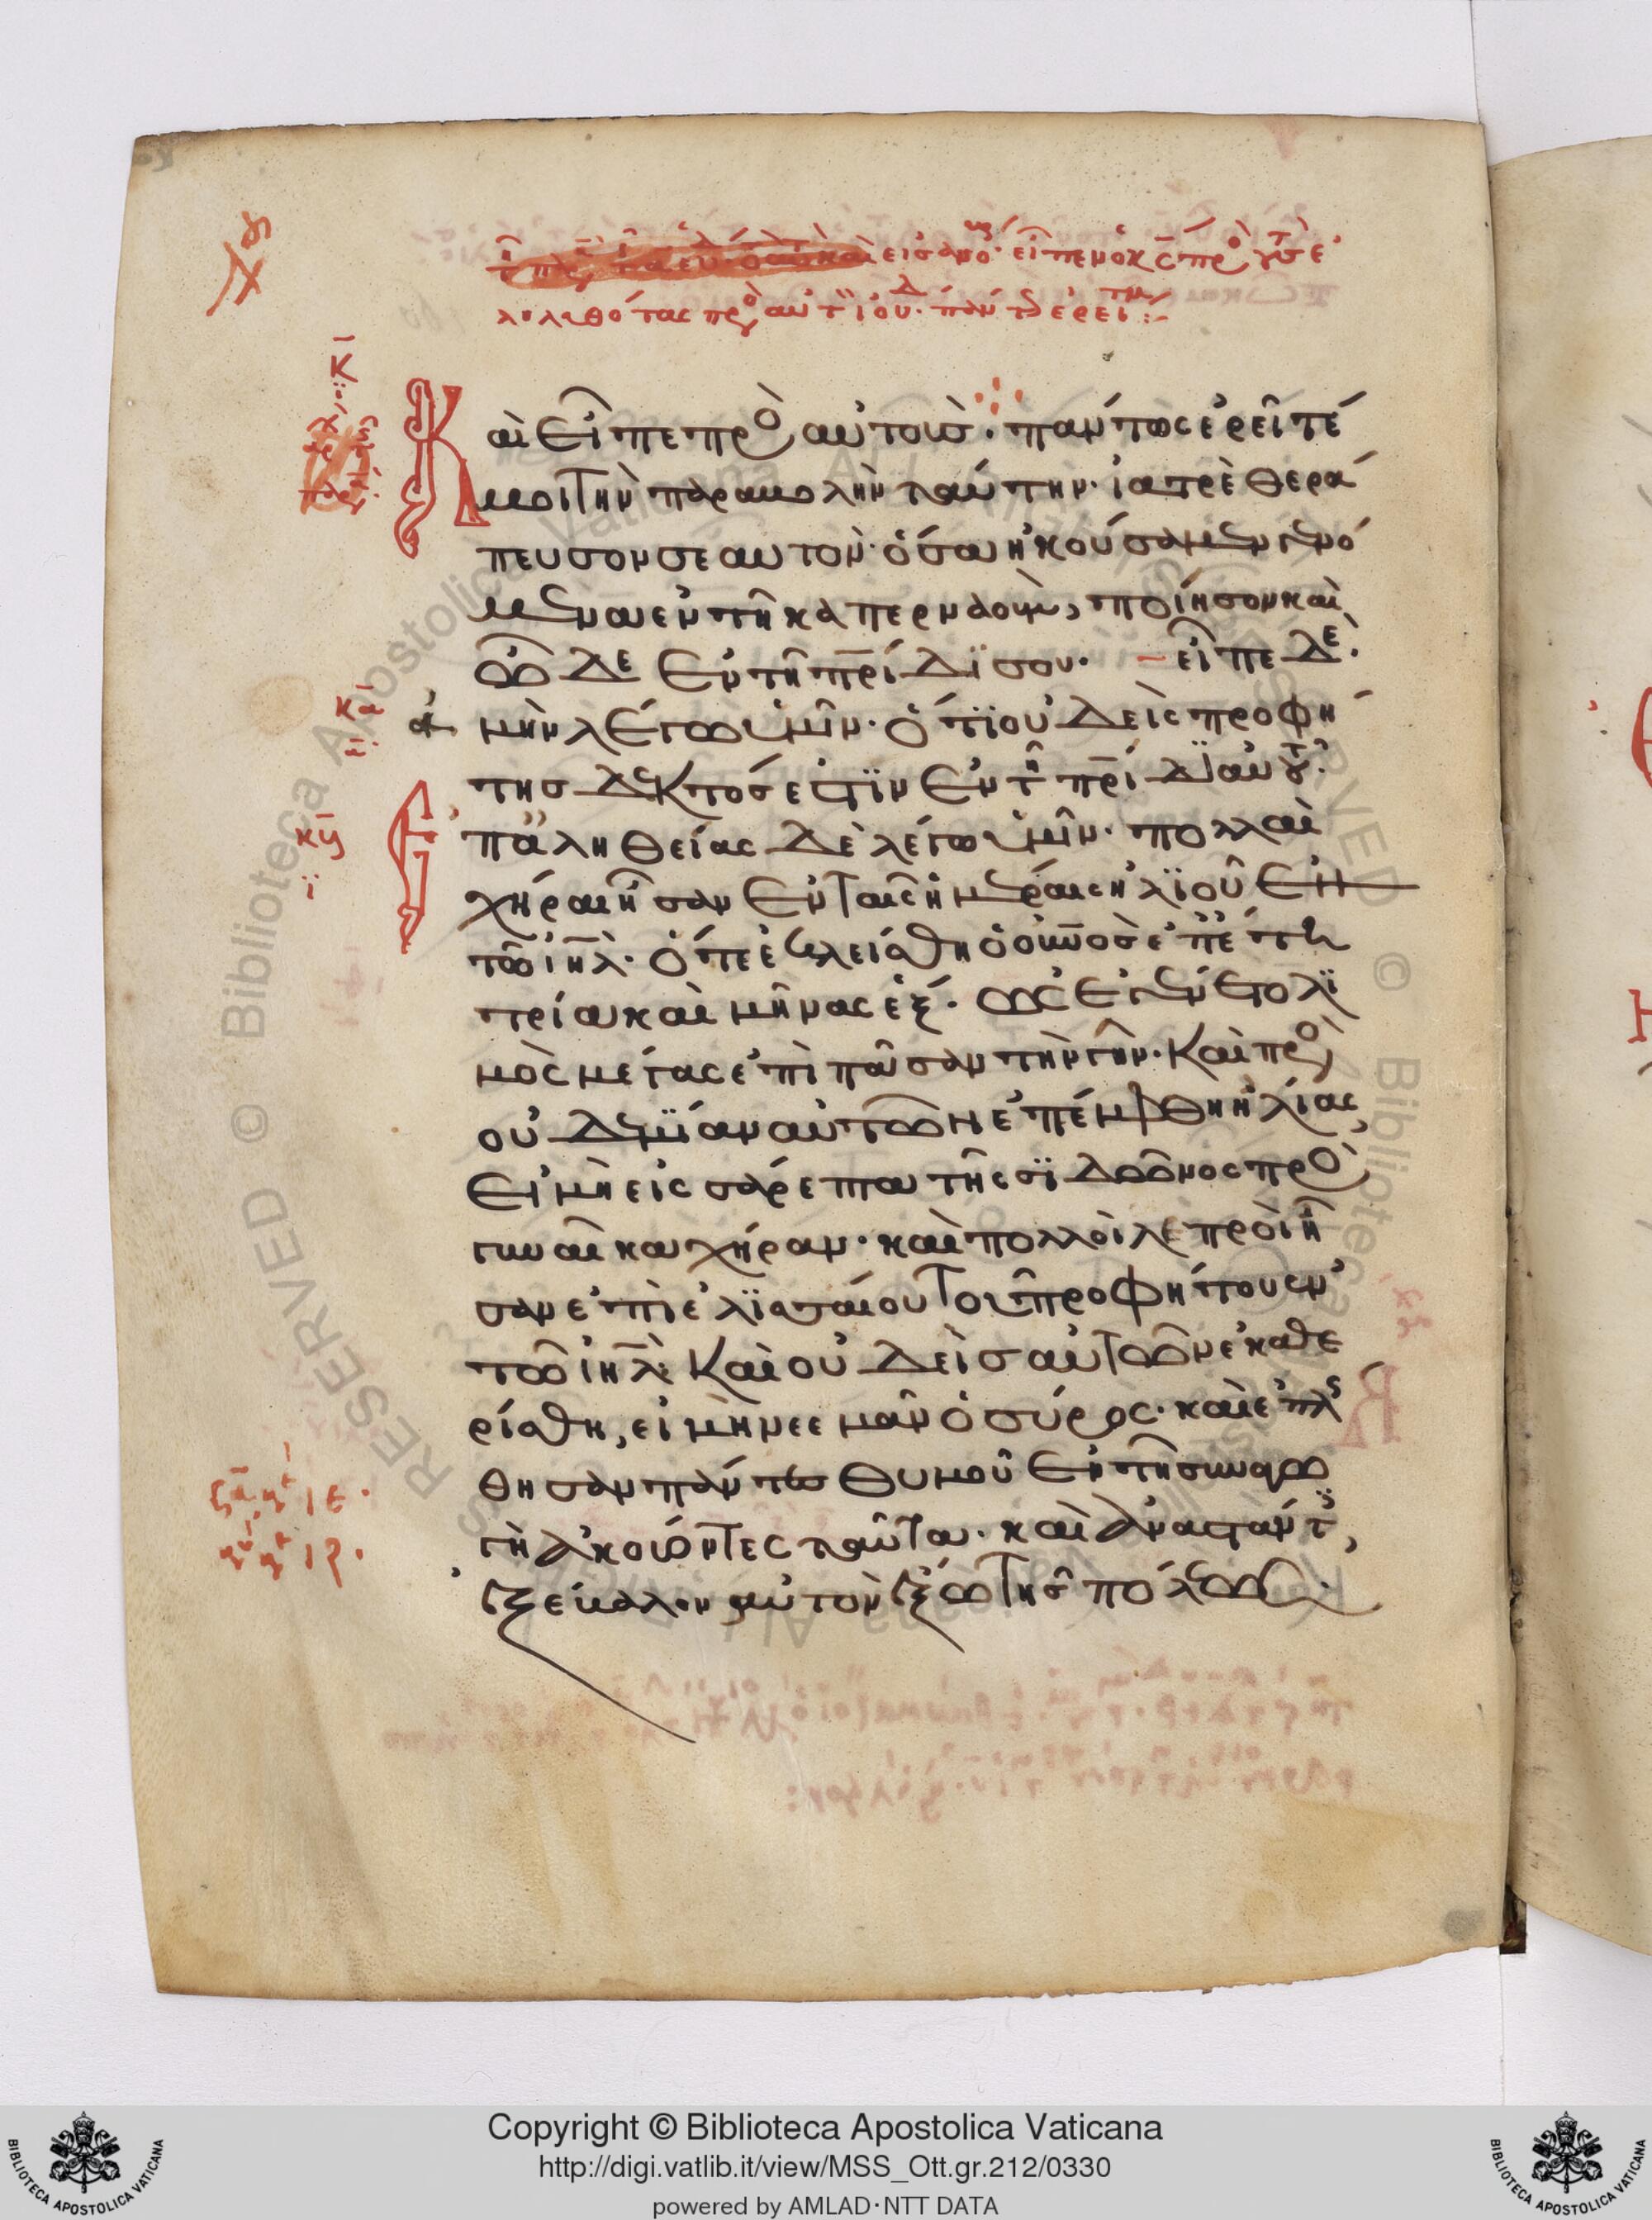 καὶ εἶπε πρὸ αὐτούσ· πάντως ἐρεῖτέ
μοι τὴν παραβολὴν ταύτην· ἰατρὲ θερά
πευσον σεαυτόν· ὅσα ἠκούσαμεν γενό
μενα ἐν τῆ καπερναούμ, ποίησον καὶ
ὧδε ἐν τῆ πρίδϊ σου· εἶπε δέ·
ἀ μὴν λέγω ὑμῖν· ὅτϊ οὐδεὶς προφή
τησ δεκτόσ ἐστϊν ἐν τῆ πρίδϊ αὐτοῦ·
ἐ π᾽ ἀληθείας δὲ λέγω ὑμῖν· πολλαὶ
χῆραι ἦσαν ἐν ταῖς ἡμέραις ἠλϊοῦ ἐν
τῶ ἰηλ· ὅτε ἐκλείσθη ὁ οὐνοσ ἐπὶ ἔτη
τρία καὶ μῆνας ἕξ· ὡς ἐγένετο λϊ
μὸς μέγας ἐπὶ πᾶσαν τὴν γῆν· καὶ πρὸ
οὐδεμϊάν αὐτῶν ἐπέμφθη ἠλίας,
εἰ μὴ εἰς σάρεπτα τῆς σϊδῶνος πρὸ
γυναῖκα χήραν· καὶ πολλοὶ λεπροὶ ἦ
σαν ἐπὶ ἐλϊσσαίου τοῦ προφήτου ἐν
τῶ ἰηλ· καὶ οὐδεὶσ αὐτῶν ἐκαθε
ρίσθη, εἰ μὴ νεεμὰν ὁ σύρος· καὶ ἐπλή
θησαν πάντες θυμοῦ ἐν τῆ συναγω
γῆ ἀκούοντες ταῦτα· καὶ ἀναστάντες,
ἐξέβαλον αὐτὸν ἔξω τῆσ πόλεως·
Copyright © Biblioteca Apostolica Vaticana
http://digi.vatlib.it/view/MSS_Ott.gr.212/0330
powered by AMLAD·NTT DATA